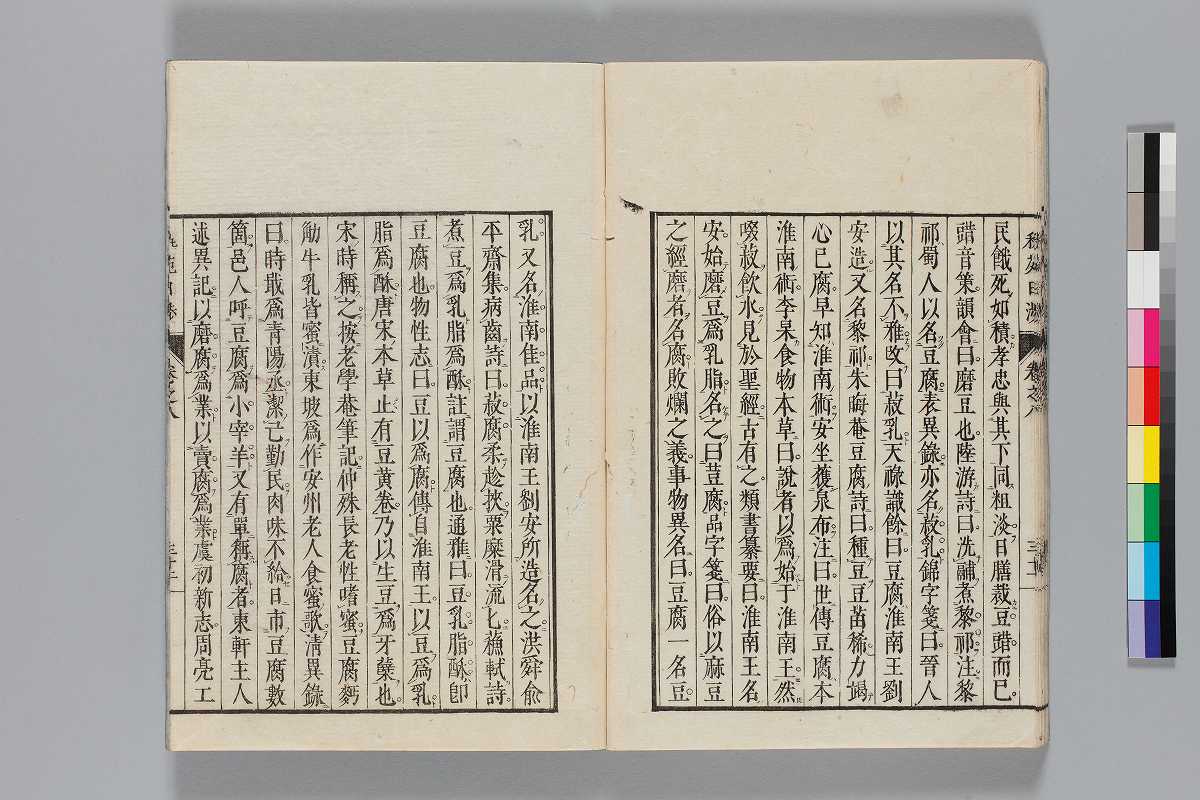 民餓死如積孝忠與其下同粗淡日膳裁豆䜺而已
䜺音策韻會曰磨豆也陸游詩曰洗鬴煮黎祁注黎
祁蜀人以名豆腐表異錄亦名菽乳錦字箋曰晉人
以其名不雅改曰菽乳天祿識餘曰豆腐淮南王劉
安造又名黎祁朱晦菴豆腐詩曰種豆豆苗稀力竭
心已腐早知淮南術安坐獲泉布注曰世傳豆腐本
淮南術李杲食物本草曰說者以爲始于淮南王然
啜菽飲水見於聖經古有之類書纂要曰淮南王名
安始磨豆爲乳脂名之曰荳腐品字箋曰俗以麻豆
之經磨者名腐取敗爛之義事物異名曰豆腐一名豆
乳又名淮南佳品以淮南王劉安所造名之洪舜兪
平齋集病齒詩曰菽腐柔趁挾粟糜滑流匕蘓軾詩
煮豆爲乳脂爲酥註謂豆腐也通雅曰豆乳脂酥卽
豆腐也物性志曰豆以爲腐傳自淮南王以豆爲乳
脂爲酥唐宋本草止有豆黃卷乃以生豆爲牙蘖也
宋時稱之按老學菴筆記仲殊長老性嗜蜜豆腐麪
觔牛乳皆蜜漬東坡爲作安州老人食蜜歌淸異錄
曰時戢爲靑陽丞潔己勤民肉味不給日市豆腐數
箇邑人呼豆腐爲小宰羊又有單稱腐者東軒主人
述異記以磨腐爲業以賣腐爲業虞初新志周亮工